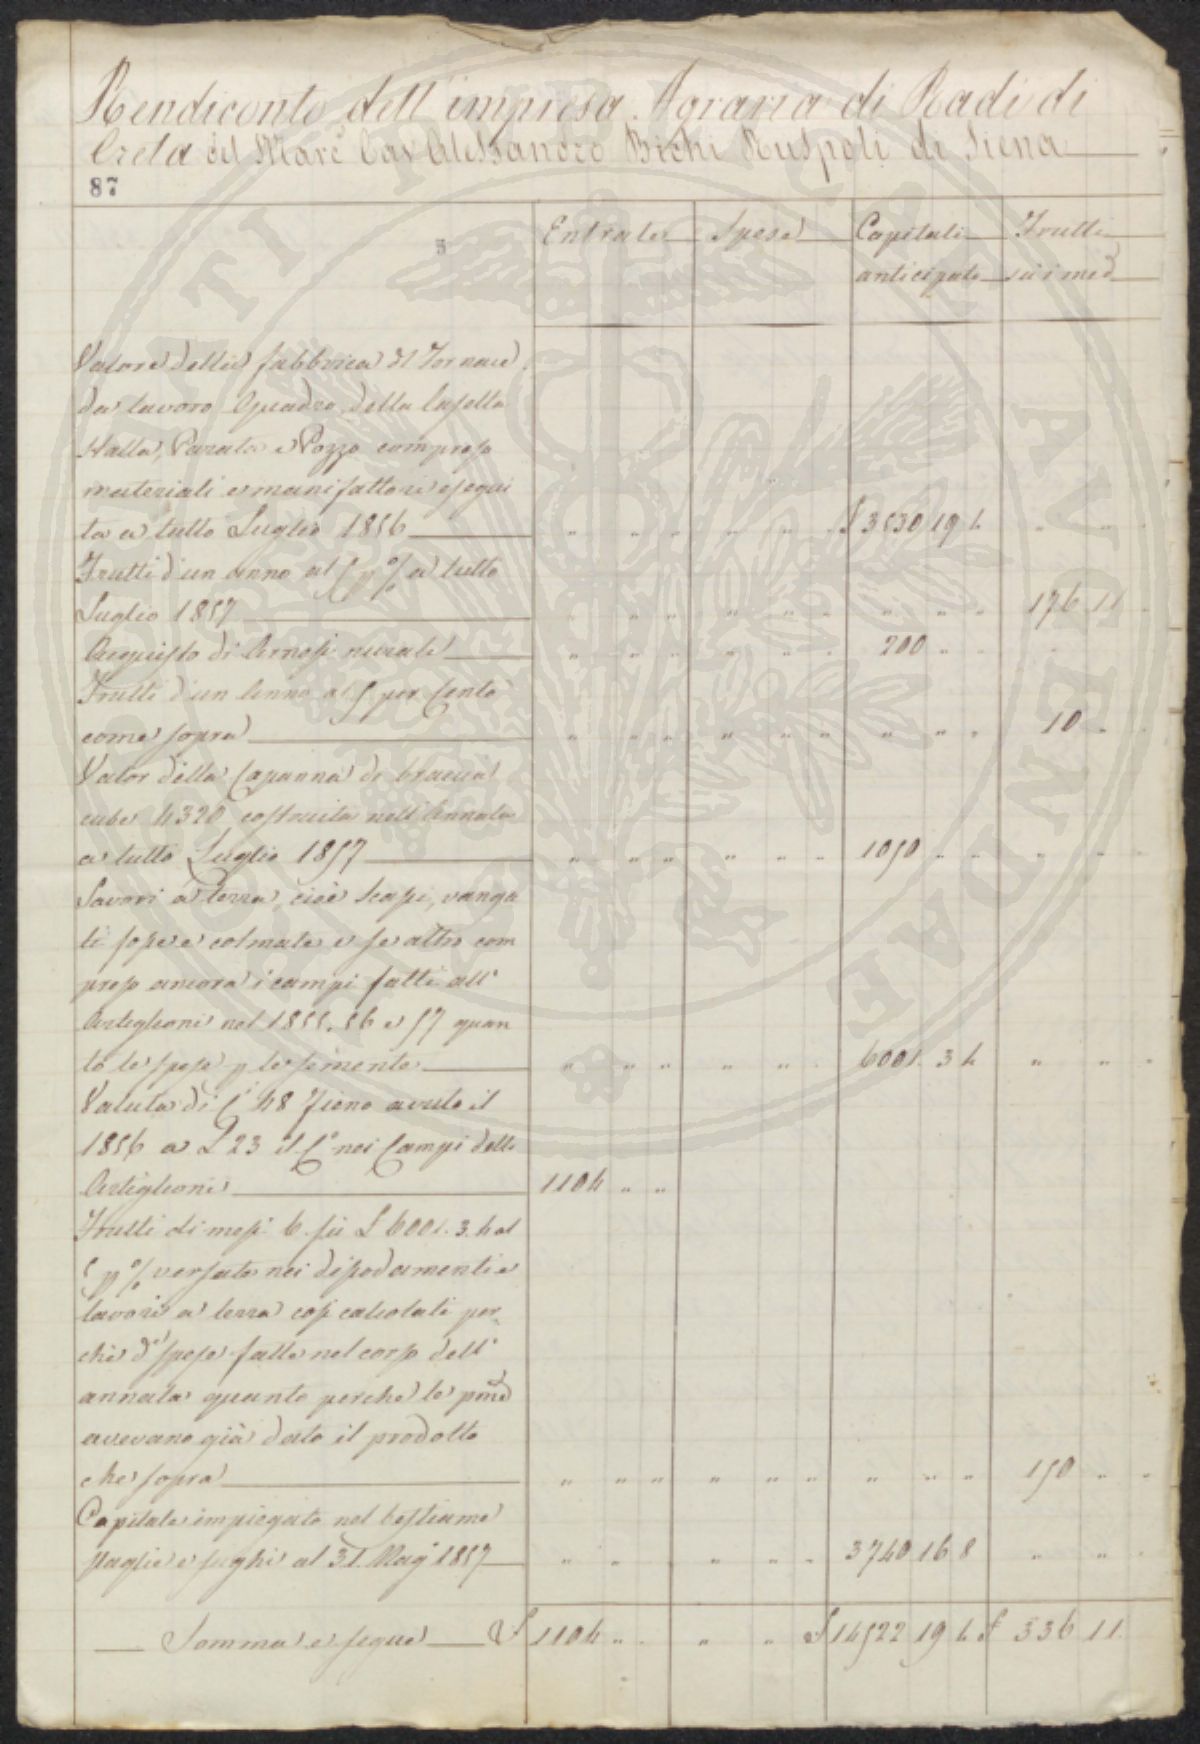 Rendiconto dell'impresa Agraria di Radi di
Creta del Marc.e Cav Alessandro Bichi Ruspoli di Siena
87
Entrate Spese Capitali Frutti
anticipati sui med.
Valore della fabbrica di Fornace
da lavoro Quadro, della Casetta
Stalla, Parata e Pozzo compreso
materiali e manifattorie esegui
ta a tutto Luglio 1856 " " " " " " £ 3530 19 4 " " "
Frutti d'un anno al 5 p% a tutto
Luglio 1857 " " " " " " " " " 176 11 "
Acquisto di Arnesi rurali " " " " " " 200 " "
Frutti d'un Anno al 5 per Cento
come sopra " " " " " " " " " 10 " "
Valor della Capanna di braccia
cube 4320 costruita nell'Annata
a tutto Luglio 1857 " " " " " " 1050 " " " " "
Lavori a terra, cioè scassi, vanga
ti fosse e colmate e se altro com
preso ancora i campi fatti all'
Artiglioni nel 1855, 56 e 57 quan
to le spese p le semente " " " " " " 6001. 3 4 " " "
Valuta di C.a 48 Fieno avuto il
1856 a £ 23 il C.o nei Campi dell'
Artiglioni 1104 " "
Frutti di mesi 6. su £ 6001. 3. 4 al
5 p% versato nei disodamenti e
lavori a terra così calcolati per
chè d.e spese fatte nel corso dell'
annata quanto perche le pmed
avevano già dato il prodotto
che sopra " " " " " " " " " 150 " "
Capitale impiegato nel bestiame
paglie e sughi al 31. Mag.o 1857 " " " " " " 3740 16 8 " " "
Somma e segue £ 1104 " " " " £ 14522 19 4 £ 336 11